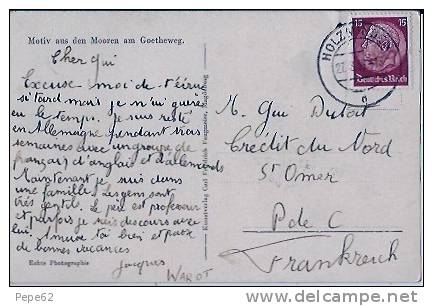 Motiv aus den Mooren am Goetheweg.
Cher Gui
Excuse moi de t'écrire
si tard mais je n'ai guère
eu le temps. Je suis resté
en Allemagne pendant trois
semaines avec un groupe de
français, d'anglais et d'allemands
Maintenant je suis dans
une famille. Les gens sont
très gentils. Le père est professeur
et parfois je suis des cours avec
lui. Amuse toi bien et passe
de bonnes vacances
Jacques
WAROT
Echte Photographie
Kunstverlag Carl Friedrich Magdeburg
HOLZ
27
15 15
Deutsches Reich
M. Gui Dutoit
Crédit du Nord
St Omer
P de C
Frankreich
Pepe62
www.delcampe.net